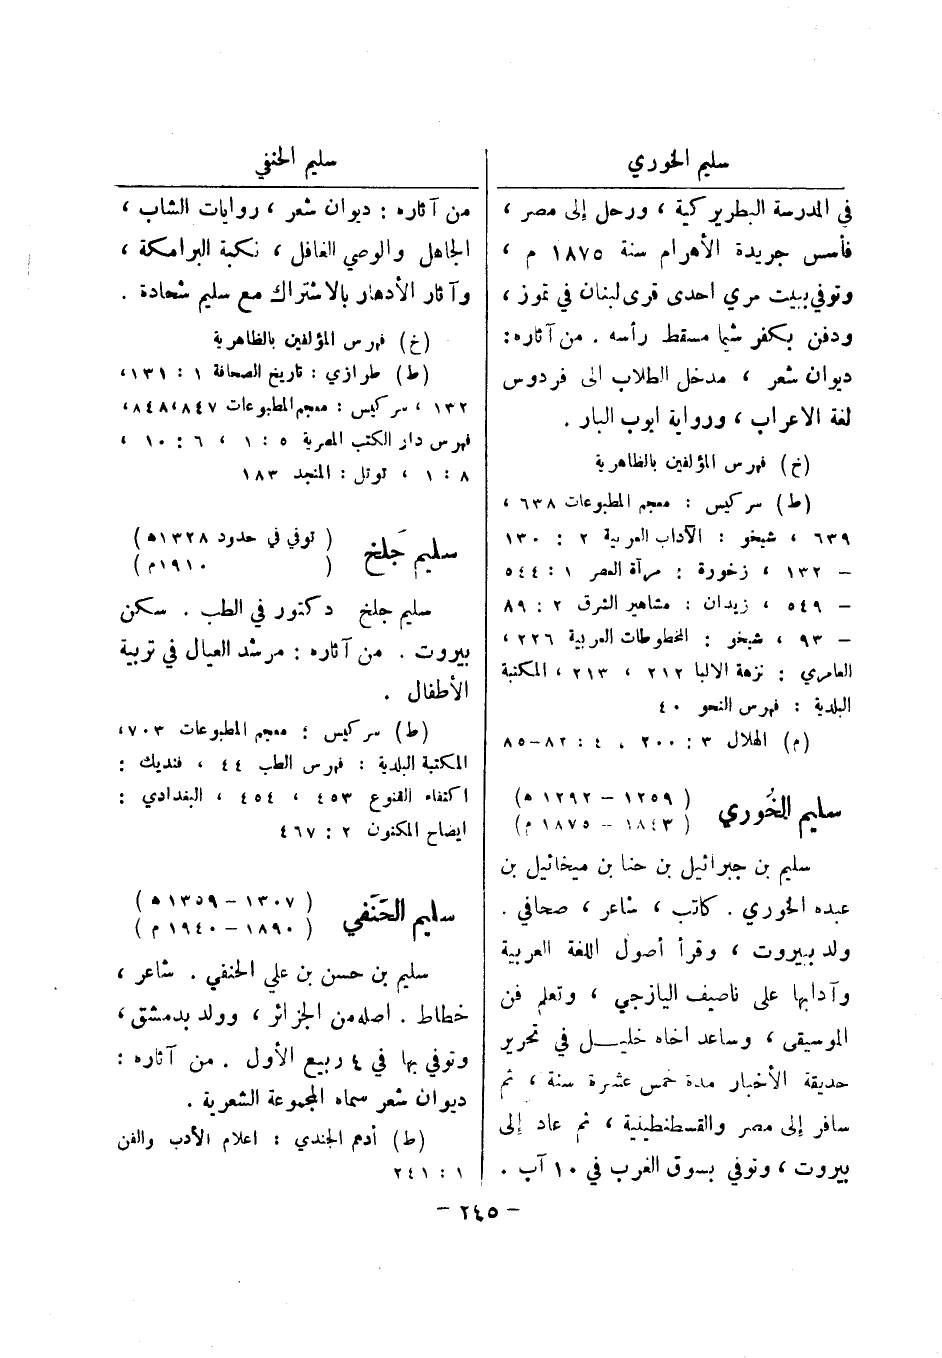 سليم الخوري
في المدرسة البطريركية ، ورحل إلى مصر ،
فأسس جريدة الأهرام سنة ١٨٧٥ م ،
وتوفي ببيت مري احدى قرى لبنان في تموز ،
ودفن بكفر شيما مسقط رأسه . من آثاره :
ديوان شعر ، مدخل الطلاب الى فردوس
لغة الاعراب ، ورواية ايوب البار .
(خ) فهرس المؤلفين بالظاهرية
(ط) سركيس : معجم المطبوعات ٦٣٨ ،
٦٣٩ ، شيخو : الآداب العربية ٢ : ١٣٠
– ١٣٢ ، زخورة : مرآة العصر ١ : ٥٤٤
– ٥٤٩ ، زيدان : مشاهير الشرق ٢ : ٨٩
– ٩٣ ، شيخو : المخطوطات العربية ٢٢٦ ،
العامري : نزهة الالبا ٢١٢ ، ٢١٣ ، المكتبة
البلدية : فهرس النحو ٤٠
(م) الهلال ٣ : ٢٠٠ ، ٤ : ٨٢–٨٥
سليم الخُوري ( ١٢٥٩ – ١٢٩٢ ه)
( ١٨٤٣ – ١٨٧٥ م)
سليم بن جبرائيل بن حنا بن ميخائيل بن
عبده الخوري . كاتب ، شاعر ، صحافي .
ولد ببيروت ، وقرأ أصول اللغة العربية
وآدابها على ناصيف اليازجي ، وتعلم فن
الموسيقى ، وساعد اخاه خليل في تحرير
حديقة الأخبار مدة خمس عشرة سنة ، ثم
سافر إلى مصر والقسطنطينية ، ثم عاد إلى
بيروت ، وتوفي بسوق الغرب في ١٠ آب .
سليم الحنفي
من آثاره : ديوان شعر ، روايات الشاب ،
الجاهل والوصي الغافل ، نكبة البرامكة ،
وآثار الأدهار بالاشتراك مع سليم شحادة .
(خ) فهرس المؤلفين بالظاهرية
(ط) طرازي : تاريخ الصحافة ١ : ١٣١ ،
١٣٢ ، سركيس : معجم المطبوعات ٨٤٧ ، ٨٤٨ ،
فهرس دار الكتب المصرية ٥ : ١ ، ٦ : ١٠ ،
٨ : ١ ، توتل : المنجد ١٨٣
سليم جَلخ ( توفي في حدود ١٣٢٨ه)
( ١٩١٠م)
سليم جلخ دكتور في الطب . سكن
بيروت . من آثاره : مرشد العيال في تربية
الأطفال .
(ط) سركيس : معجم المطبوعات ٧٠٣ ،
المكتبة البلدية : فهرس الطب ٤٤ ، فنديك :
اكتفاء القنوع ٤٥٣ ، ٤٥٤ ، البغدادي :
ايضاح المكنون ٢ : ٤٦٧
سليم الحَنَفي ( ١٣٠٧ – ١٣٥٩ ه)
( ١٨٩٠ – ١٩٤٠ م)
سليم بن حسن بن علي الحنفي . شاعر ،
خطاط . اصله من الجزائر ، وولد بدمشق ،
وتوفي بها في ٤ ربيع الأول . من آثاره :
ديوان شعر سماه المجموعة الشعرية .
(ط) أدهم الجندي : اعلام الأدب والفن
١ : ٢٤١
– ٢٤٥ –